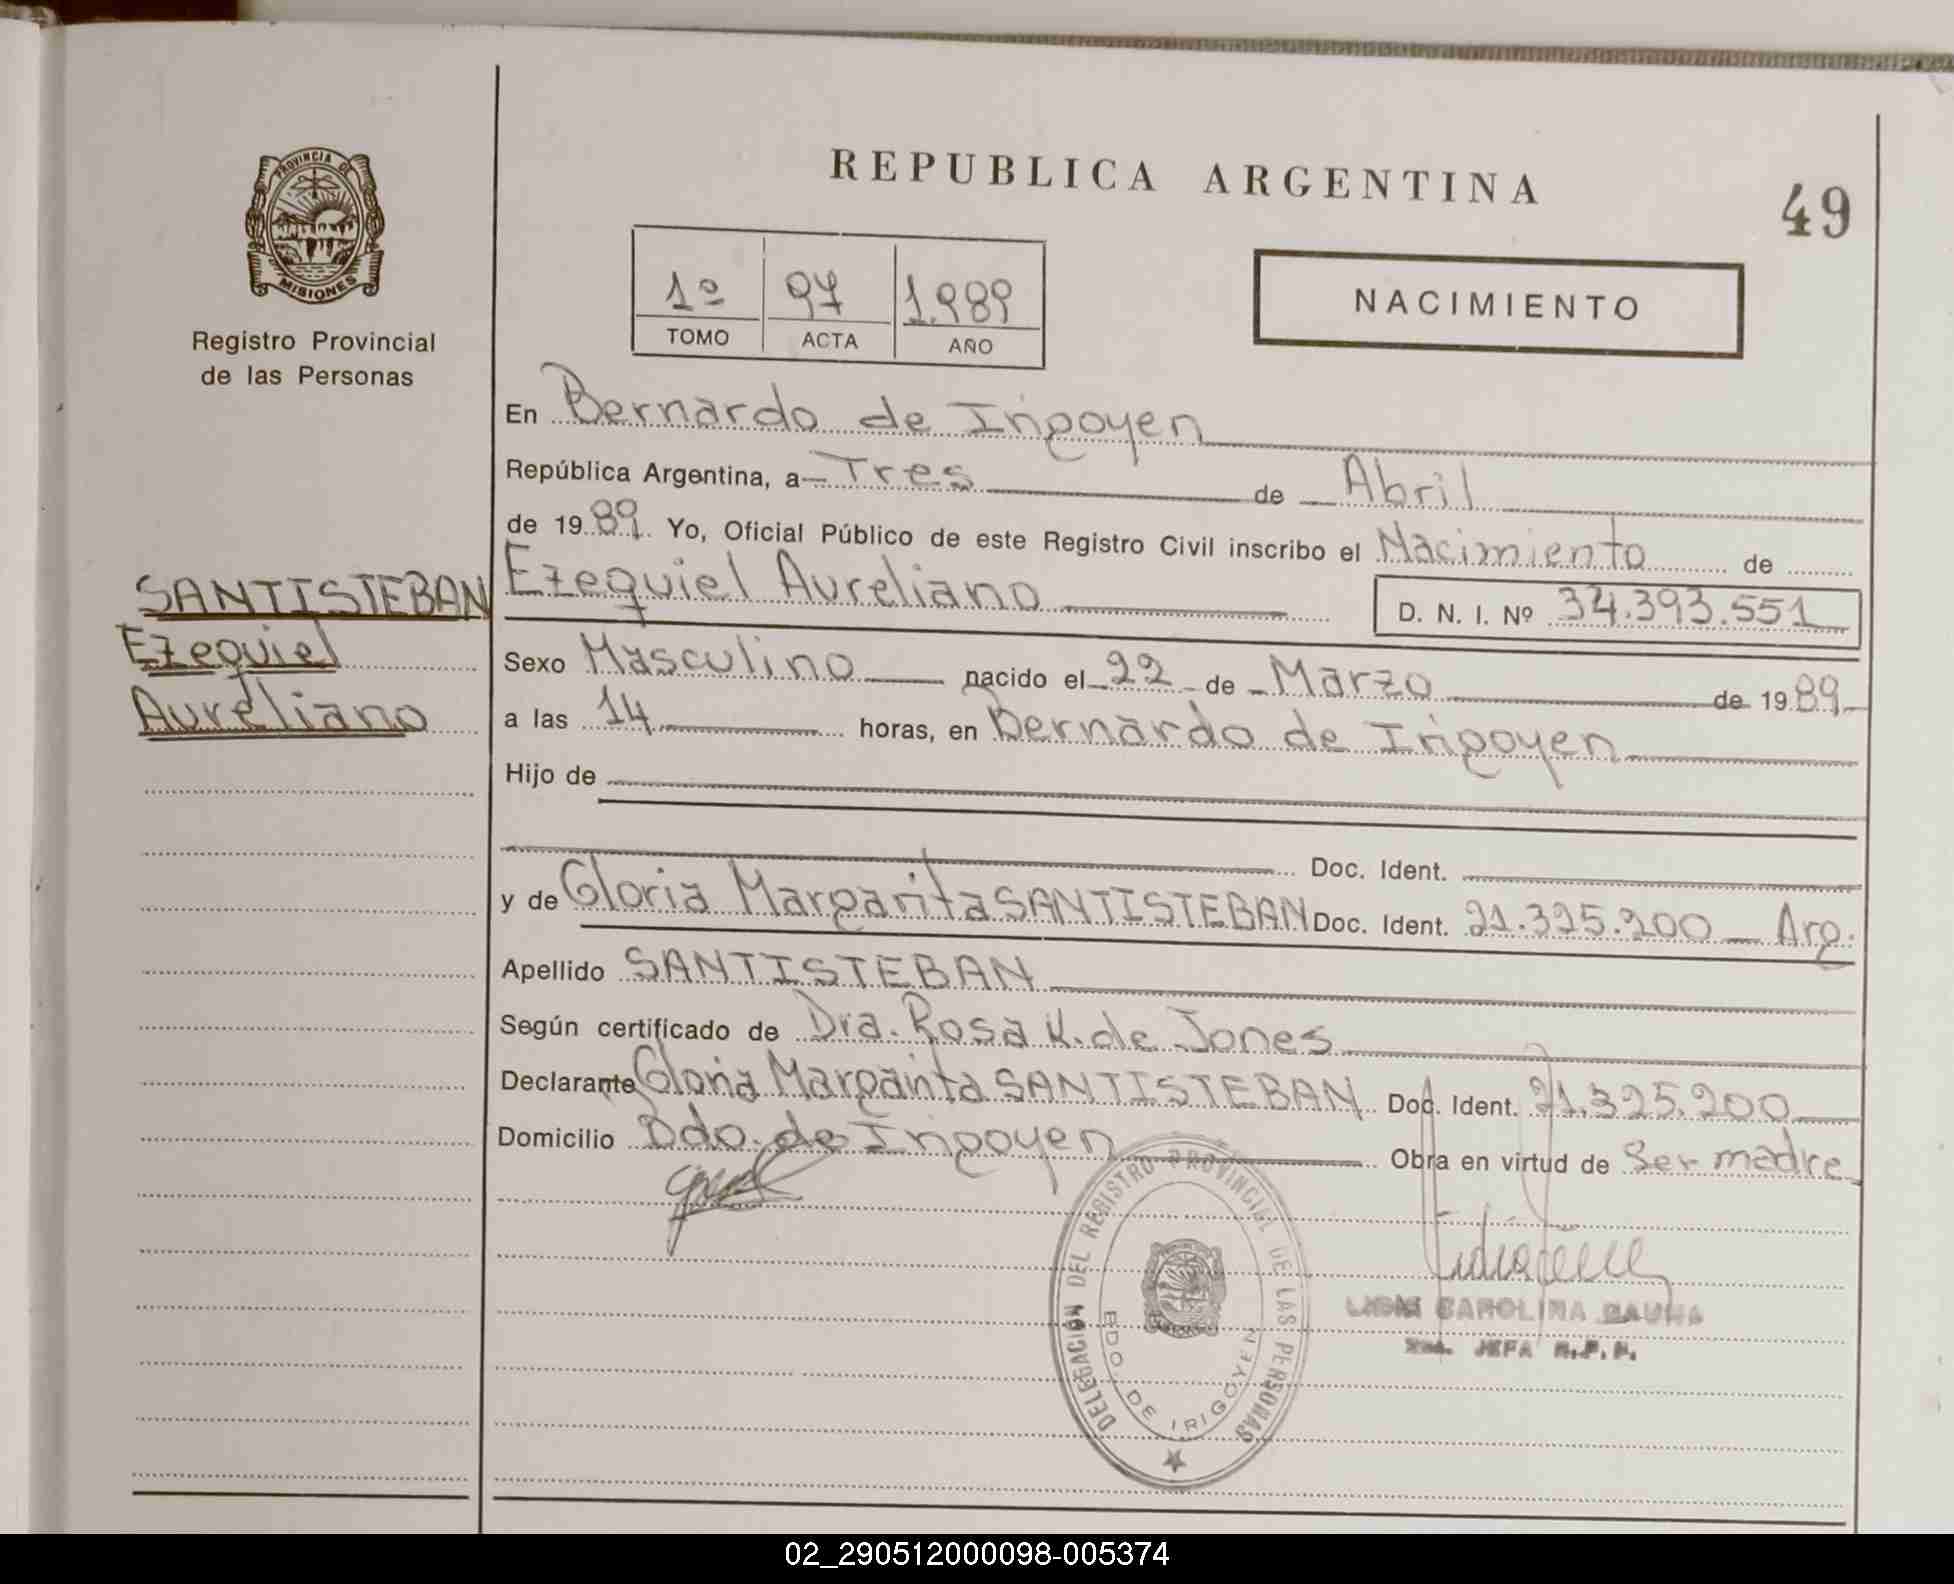 REPUBLICA ARGENTINA
49
PROVINCIA DE
MISIONES
Registro Provincial
de las Personas
1º 97 1.989
TOMO ACTA AÑO
NACIMIENTO
En Bernardo de Irigoyen
República Argentina, a Tres de Abril
de 1989. Yo, Oficial Público de este Registro Civil inscribo el Nacimiento de
SANTISTEBAN
Ezequiel
Aureliano
Ezequiel Aureliano
D. N. I. Nº 34.393.551
Sexo Masculino nacido el 22 de Marzo de 1989
a las 14 horas, en Bernardo de Irigoyen
Hijo de
Doc. Ident.
y de Gloria Margarita SANTISTEBAN Doc. Ident. 21.325.200 Arg.
Apellido SANTISTEBAN
Según certificado de Dra. Rosa K. de Jones
Declarante Gloria Margarita SANTISTEBAN Doc. Ident. 21.325.200
Domicilio Bdo. de Irigoyen Obra en virtud de Ser madre
DELEGACION DEL REGISTRO PROVINCIAL DE LAS PERSONAS
BDO. DE IRIGOYEN
CAROLINA
JEFA R.P.P.
02_290512000098-005374